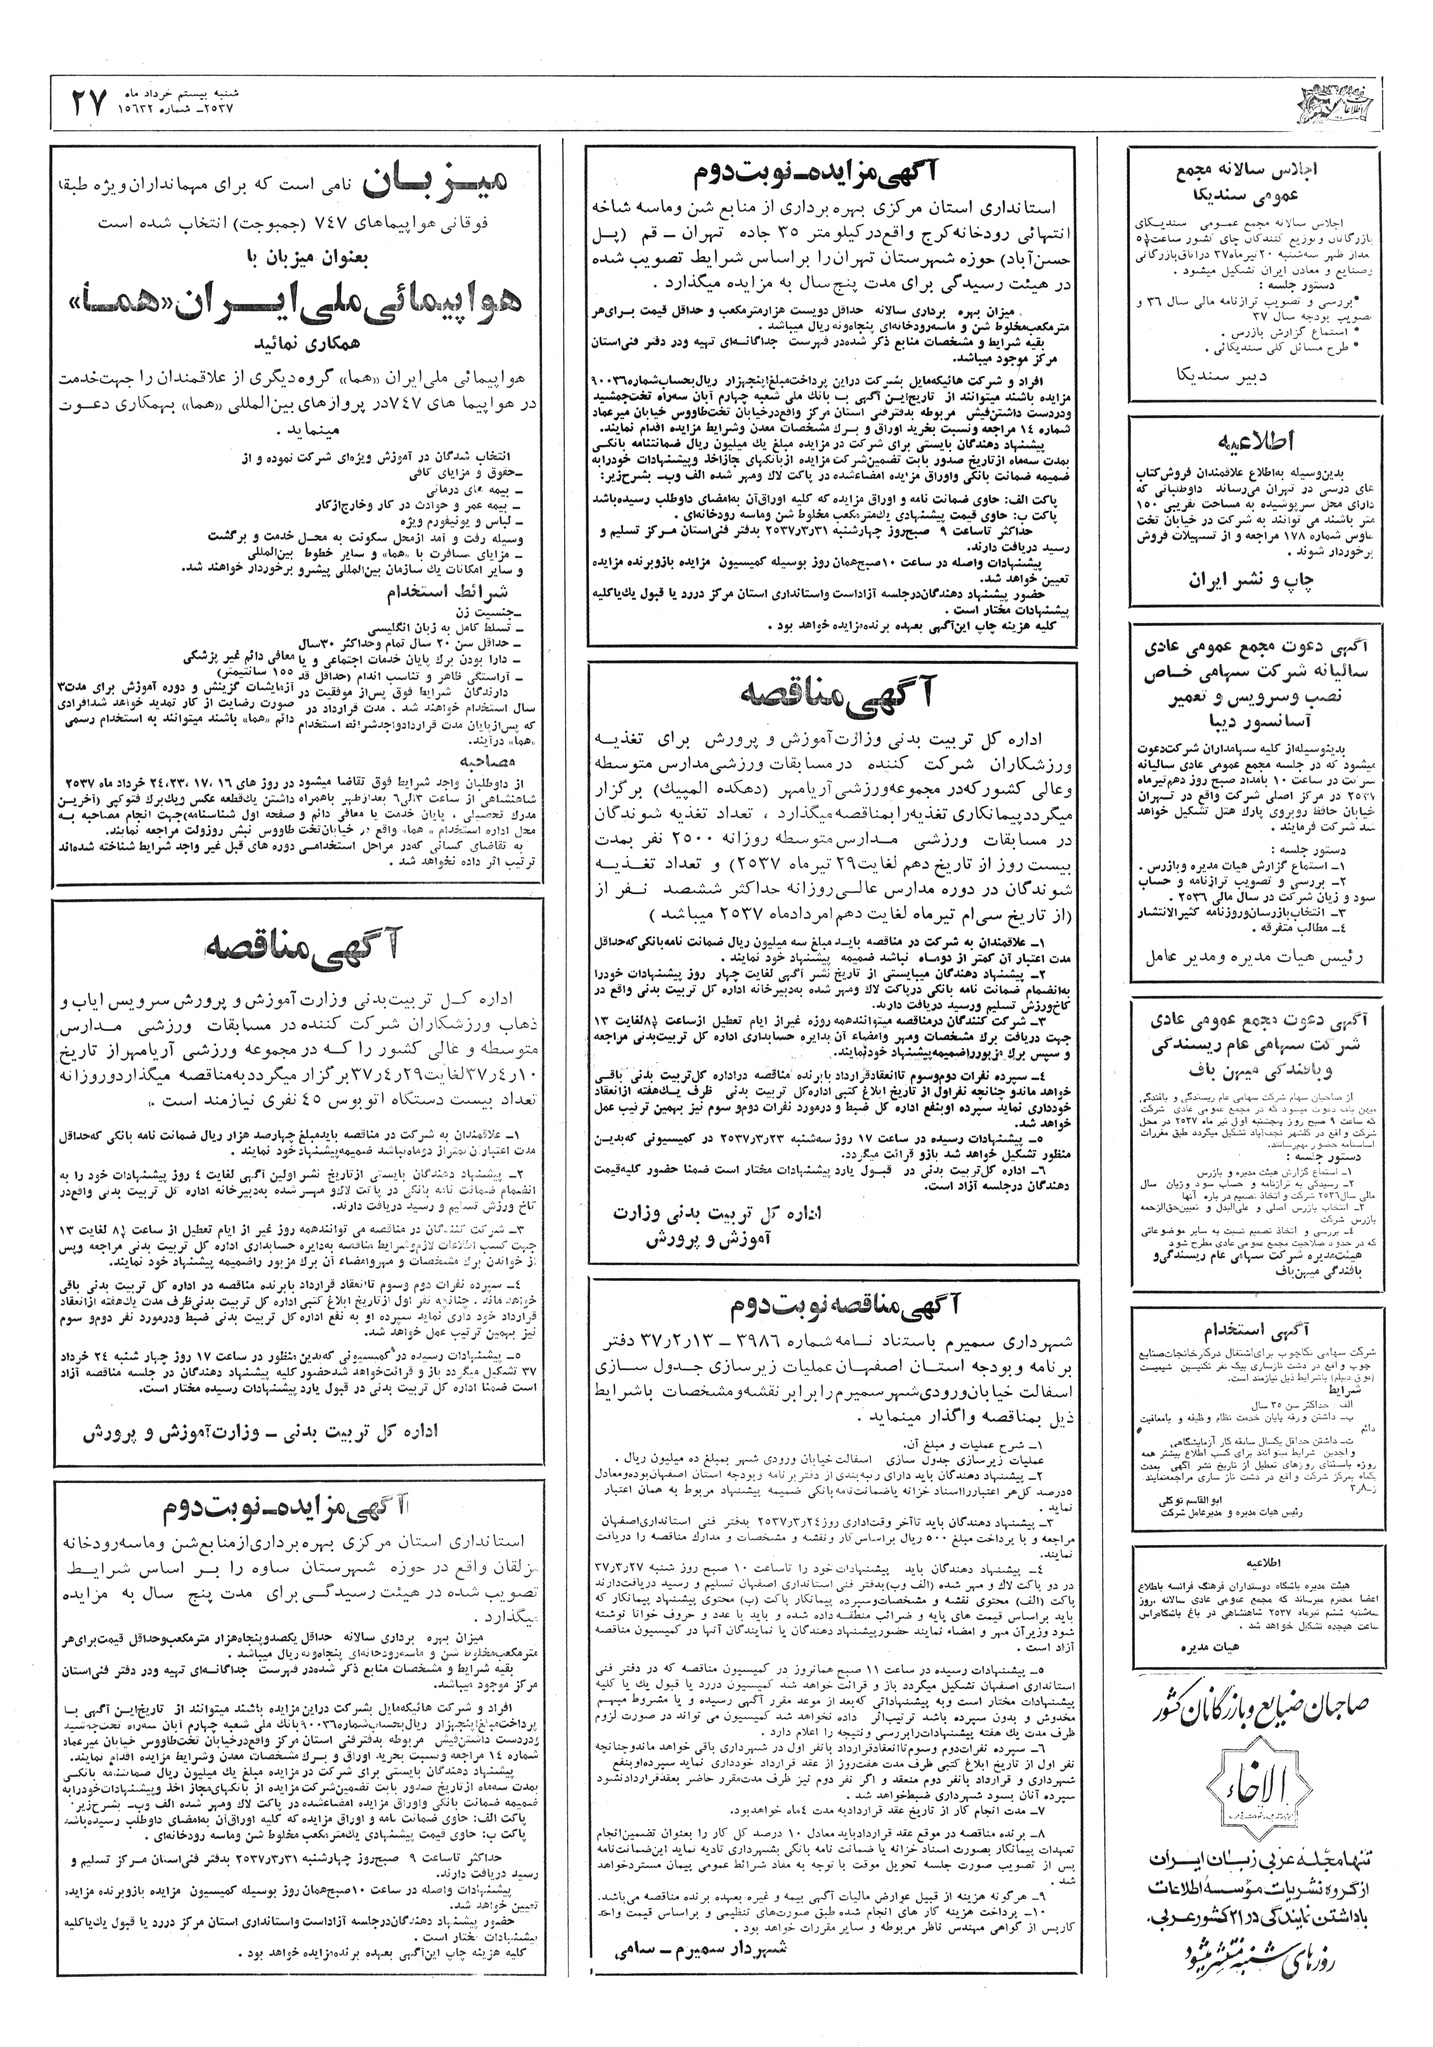 شنبه بیستم خرداد ماه
۲۵۳۷ـ شماره ۱۵۶۳۲
۲۷
اجلاس سالانه مجمع
عمومی سندیکا
اجلاس سالانه مجمع عمومی سندیکای
بازرگانان و توزیع کنندگان چای کشور ساعت ۵
بعداز ظهر سه‌شنبه ۲۰ تیر ماه ۳۷ در اتاق بازرگانی
و صنایع و معادن ایران تشکیل میشود .
دستور جلسه :
* بررسی و تصویب ترازنامه مالی سال ۳۶ و
تصویب بودجه سال ۳۷
* استماع گزارش بازرس .
* طرح مسائل کلی سندیکائی .
دبیر سندیکا
اطلاعیه
بدین‌وسیله به‌اطلاع علاقمندان فروش کتاب
های درسی در تهران می‌رساند داوطلبانی که
دارای محل سرپوشیده به مساحت تقریبی ۱۵۰
متر باشند می توانند به شرکت در خیابان تخت
طاوس شماره ۱۷۸ مراجعه و از تسهیلات فروش
برخوردار شوند .
چاپ و نشر ایران
آگهی دعوت مجمع عمومی عادی
سالیانه شرکت سهامی خاص
نصب وسرویس و تعمیر
آسانسور دیبا
بدینوسیله از کلیه سهامداران شرکت دعوت
میشود که در جلسه مجمع عمومی عادی سالیانه
شرکت در ساعت ۱۰ بامداد صبح روز دهم تیر ماه
۲۵۳۷ در مرکز اصلی شرکت واقع در تهران
خیابان حافظ روبروی پارک هتل تشکیل خواهد
شد شرکت فرمایند .
دستور جلسه :
۱ـ استماع گزارش هیات مدیره و بازرس .
۲ـ بررسی و تصویب ترازنامه و حساب
سود و زیان شرکت در سال مالی ۲۵۳۶ .
۳ـ انتخاب بازرسان و روزنامه کثیرالانتشار
۴ـ مطالب متفرقه .
رئیس هیات مدیره و مدیر عامل
آگهی دعوت مجمع عمومی عادی
شرکت سهامی عام ریسندگی
و بافندگی میهن باف
از صاحبان سهام شرکت سهامی عام ریسندگی و بافندگی
میهن باف دعوت میشود که در مجمع عمومی عادی شرکت
که ساعت ۹ صبح روز پنجشنبه اول تیر ماه ۲۵۳۷ در محل
شرکت واقع در گلشهر نجف‌آباد تشکیل میگردد طبق مقررات
اساسنامه حضور بهمرسانند.
دستور جلسه :
۱ـ استماع گزارش هیئت مدیره و بازرس
۲ـ رسیدگی به ترازنامه و حساب سود و زیان سال
مالی سال ۲۵۳۶ شرکت و اتخاذ تصمیم در باره آنها
۳ـ انتخاب بازرس اصلی و علی‌البدل و تعیین حق‌الزحمه
بازرس شرکت
۴ـ بررسی و اتخاذ تصمیم نسبت به سایر موضوعاتی
که در حدود صلاحیت مجمع عمومی عادی مطرح شود
هیئت‌مدیره شرکت سهامی عام ریسندگی و
بافندگی میهن‌باف
آگهی استخدام
شرکت سهامی نکاچوب برای اشتغال در کارخانجات صنایع
چوب واقع در دشت نازساری بیک نفر تکنیسین شیمیست
(فوق دیپلم) باشرایط ذیل نیازمند است.
شرایط
الف: حداکثر سن ۳۵ سال
ب‌ـ داشتن ورقه پایان خدمت نظام وظیفه و یا معافیت
دائم
ت‌ـ داشتن حداقل یکسال سابقه کار آزمایشگاهی
واجدین شرایط میتوانند برای کسب اطلاع بیشتر همه
روزه باستثنای روزهای تعطیل از تاریخ نشر آگهی بمدت
یکماه بمرکز شرکت واقع در دشت ناز ساری مراجعه نمایند.
ابوالقاسم توکلی
رئیس هیات مدیره و مدیرعامل شرکت
اطلاعیه
هیئت مدیره باشگاه دوستداران فرهنگ فرانسه باطلاع
اعضا محترم میرساند که مجمع عمومی عادی سالانه روز
سه‌شنبه ششم تیرماه ۲۵۳۷ شاهنشاهی در باغ باشگاه راس
ساعت هیجده تشکیل خواهد شد .
هیات مدیره
صاحبان صنایع و بازرگانان کشور
الاخاء
تنها مجله عربی زبان ایران
از گروه نشریات مؤسسهٔ اطلاعات
با داشتن نمایندگی در ۲۱ کشور عربی.
روزهای شنبه منتشر میشود
آگهی مزایده ـ نوبت دوم
استانداری استان مرکزی بهره برداری از منابع شن و ماسه شاخه
انتهائی رودخانه کرج واقع در کیلومتر ۳۵ جاده تهران ـ قم (پل
حسن‌آباد) حوزه شهرستان تهران را براساس شرایط تصویب شده
در هیئت رسیدگی برای مدت پنج سال به مزایده میگذارد .
میزان بهره برداری سالانه حداقل دویست هزار متر مکعب و حداقل قیمت برای هر
متر مکعب مخلوط شن و ماسه رودخانه‌ای پنجاه و نه ریال میباشد .
بقیه شرایط و مشخصات منابع ذکر شده در فهرست جداگانه‌ای تهیه و در دفتر فنی استان
مرکز موجود میباشد.
افراد و شرکت هائیکه مایل بشرکت در این پرداخت مبلغ اپنجهزار ریال بحساب شماره ۹۰۰۳۶
مزایده باشند میتوانند از تاریخ این آگهی ب بانک ملی شعبه چهارم آبان سه‌راه تخت جمشید
و در دست داشتن فیش مربوطه بدفتر فنی استان مرکز واقع در خیابان تخت طاووس خیابان میرعماد
شماره ۱۴ مراجعه و نسبت بخرید اوراق و برک مشخصات معدن و شرایط مزایده اقدام نمایند.
پیشنهاد دهندگان بایستی برای شرکت در مزایده مبلغ یک میلیون ریال ضمانتنامه بانکی
بمدت سه‌ماه از تاریخ صدور بابت تضمین شرکت مزایده از بانکهای مجاز اخذ و پیشنهادات خود را به
ضمیمه ضمانت بانکی و اوراق مزایده امضاء شده در پاکت لاک و مهر شده الف و ب‌ـ بشرح زیر:
پاکت الف: حاوی ضمانت نامه و اوراق مزایده که کلیه اوراق آن به‌امضای داوطلب رسیده باشد
پاکت ب: حاوی قیمت پیشنهادی یک متر مکعب مخلوط شن و ماسه رودخانه‌ای .
حداکثر تا ساعت ۹ صبح روز چهارشنبه ۲۵۳۷ر۳ر۳۱ بدفتر فنی استان مرکز تسلیم و
رسید دریافت دارند.
پیشنهادات واصله در ساعت ۱۰ صبح همان روز بوسیله کمیسیون مزایده باز و برنده مزایده
تعیین خواهد شد.
حضور پیشنهاد دهندگان در جلسه آزاد است و استانداری استان مرکز در رد یا قبول یک یا کلیه
پیشنهادات مختار است .
کلیه هزینه چاپ این آگهی بعهده برنده مزایده خواهد بود .
آگهی مناقصه
اداره کل تربیت بدنی وزارت آموزش و پرورش برای تغذیه
ورزشکاران شرکت کننده در مسابقات ورزشی مدارس متوسطه
وعالی کشور که در مجموعه ورزشی آریامهر (دهکده المپیک) برگزار
میگردد پیمانکاری تغذیه را بمناقصه میگذارد ، تعداد تغذیه شوندگان
در مسابقات ورزشی مدارس متوسطه روزانه ۲۵۰۰ نفر بمدت
بیست روز از تاریخ دهم لغایت ۲۹ تیر ماه ۲۵۳۷) و تعداد تغذیه
شوندگان در دوره مدارس عالی روزانه حداکثر ششصد نفر از
(از تاریخ سی‌ام تیر ماه لغایت دهم امرداد ماه ۲۵۳۷ میباشد )
۱ـ علاقمندان به شرکت در مناقصه باید مبلغ سه میلیون ریال ضمانت نامه بانکی که حداقل
مدت اعتبار آن کمتر از دوماه نباشد ضمیمه پیشنهاد خود نمایند .
۲ـ پیشنهاد دهندگان میبایستی از تاریخ نشر آگهی لغایت چهار روز پیشنهادات خود را
به‌انضمام ضمانت نامه بانکی در پاکت لاک و مهر شده به دبیرخانه اداره کل تربیت بدنی واقع در
کاخ ورزش تسلیم و رسید دریافت دارند.
۳ـ شرکت کنندگان در مناقصه میتوانند همه روزه غیر از ایام تعطیل از ساعت ۸½ لغایت ۱۳
جهت دریافت برک مشخصات و مهر و امضاء آن بدایره حسابداری اداره کل تربیت بدنی مراجعه
و سپس برک مزبور را ضمیمه پیشنهاد خود نمایند.
۴ـ سپرده نفرات دوم و سوم تا انعقاد قرارداد با برنده مناقصه در اداره کل تربیت بدنی باقی
خواهد ماند و چنانچه نفر اول از تاریخ ابلاغ کتبی اداره کل تربیت بدنی ظرف یک هفته از انعقاد
خودداری نماید سپرده او بنفع اداره کل ضبط و در مورد نفرات دوم و سوم نیز بهمین ترتیب عمل
خواهد شد.
۵ـ پیشنهادات رسیده در ساعت ۱۷ روز سه‌شنبه ۲۵۳۷ر۳ر۲۳ در کمیسیونی که بدین
منظور تشکیل خواهد شد باز و قرائت میگردد.
۶ـ اداره کل تربیت بدنی در قبول یا رد پیشنهادات مختار است ضمنا حضور کلیه قیمت
دهندگان در جلسه آزاد است.
اداره کل تربیت بدنی وزارت
آموزش و پرورش
آگهی مناقصه نوبت دوم
شهرداری سمیرم باستناد نامه شماره ۳۹۸۶ ـ ۳۷ر۲ر۱۳ دفتر
برنامه و بودجه استان اصفهان عملیات زیرسازی جدول سازی
اسفالت خیابان ورودی شهر سمیرم را برابر نقشه و مشخصات با شرایط
ذیل بمناقصه واگذار مینماید .
۱ـ شرح عملیات و مبلغ آن.
عملیات زیرسازی جدول سازی اسفالت خیابان ورودی شهر بمبلغ ده میلیون ریال .
۲ـ پیشنهاد دهندگان باید دارای رتبه‌بندی از دفتر برنامه و بودجه استان اصفهان بوده و معادل
۵ درصد کل هر اعتبار را اسناد خزانه یا ضمانت نامه بانکی ضمیمه پیشنهاد مربوط به همان اعتبار
نماید .
۳ـ پیشنهاد دهندگان باید تا آخر وقت اداری روز ۲۵۳۷ر۳ر۲۴ بدفتر فنی استانداری اصفهان
مراجعه و با پرداخت مبلغ ۵۰۰ ریال براساس کار و نقشه و مشخصات و مدارک مناقصه را دریافت
نمایند.
۴ـ پیشنهاد دهندگان باید پیشنهادات خود را تا ساعت ۱۰ صبح روز شنبه ۳۷ر۳ر۲۷
در دو پاکت لاک و مهر شده (الف و ب) بدفتر فنی استانداری اصفهان تسلیم و رسید دریافت دارند
پاکت (الف) محتوی نقشه و مشخصات و سپرده پیمانکار پاکت (ب) محتوی پیشنهاد پیمانکار که
باید براساس قیمت های پایه و ضرائب منطقه داده شده و باید با عدد و حروف خوانا نوشته
شود و زیر آن مهر و امضاء نمایند حضور پیشنهاد دهندگان یا نمایندگان آنها در کمیسیون مناقصه
آزاد است .
۵ـ پیشنهادات رسیده در ساعت ۱۱ صبح همانروز در کمیسیون مناقصه که در دفتر فنی
استانداری اصفهان تشکیل میگردد باز و قرائت خواهد شد کمیسیون در رد یا قبول یک یا کلیه
پیشنهادات مختار است و به پیشنهاداتی که بعد از موعد مقرر آگهی رسیده و یا مشروط مبهم
مخدوش و بدون سپرده باشد ترتیب اثر داده نخواهد شد کمیسیون می تواند در صورت لزوم
ظرف مدت یک هفته پیشنهادات را بررسی و نتیجه را اعلام دارد .
۶ـ سپرده نفرات دوم و سوم تا انعقاد قرارداد با نفر اول در شهرداری باقی خواهد ماند و چنانچه
نفر اول از تاریخ ابلاغ کتبی ظرف مدت هفت روز از عقد قرارداد خودداری نماید سپرده او بنفع
شهرداری و قرارداد با نفر دوم منعقد و اگر نفر دوم نیز ظرف مدت مقرر حاضر بعقد قرارداد نشود
سپرده آنان بسود شهرداری ضبط خواهد شد.
۷ـ مدت انجام کار از تاریخ عقد قرارداد به مدت ۴ ماه خواهد بود.
۸ـ برنده مناقصه در موقع عقد قرارداد باید معادل ۱۰ درصد کل کار را بعنوان تضمین انجام
تعهدات پیمانکار بصورت اسناد خزانه یا ضمانت نامه بانکی بشهرداری تادیه نماید این ضمانت نامه
پس از تصویب صورت جلسه تحویل موقت با توجه به مفاد شرائط عمومی پیمان مسترد خواهد
شد .
۹ـ هرگونه هزینه از قبیل عوارض مالیات آگهی بیمه و غیره بعهده برنده مناقصه می‌باشد.
۱۰ـ پرداخت هزینه کار های انجام شده طبق صورت‌های تنظیمی و براساس قیمت واحد
کار پس از گواهی مهندس ناظر مربوطه و سایر مقررات خواهد بود .
شهردار سمیرم ـ سامی
میزبان نامی است که برای مهمانداران ویژه طبقه
فوقانی هواپیماهای ۷۴۷ (جمبوجت) انتخاب شده است
بعنوان میزبان با
هواپیمائی ملی ایران «هما»
همکاری نمائید
هواپیمائی ملی ایران «هما» گروه دیگری از علاقمندان را جهت خدمت
در هواپیما های ۷۴۷ در پروازهای بین‌المللی «هما» بهمکاری دعوت
مینماید .
انتخاب شدگان در آموزش ویژه‌ای شرکت نموده و از
ـ حقوق و مزایای کافی
ـ بیمه های درمانی
ـ بیمه عمر و حوادث در کار و خارج از کار
ـ لباس و یونیفورم ویژه
وسیله رفت و آمد از محل سکونت به محل خدمت و برگشت
ـ مزایای مسافرت با «هما» و سایر خطوط بین‌المللی
و سایر امکانات یک سازمان بین‌المللی پیشرو برخوردار خواهند شد.
شرائط استخدام
ـ جنسیت زن
ـ تسلط کامل به زبان انگلیسی
ـ حداقل سن ۲۰ سال تمام و حداکثر ۳۰ سال
ـ دارا بودن برک پایان خدمات اجتماعی و یا معافی دائم غیر پزشکی
ـ آراستگی ظاهر و تناسب اندام (حداقل قد ۱۵۵ سانتیمتر)
دارندگان شرایط فوق پس از موفقیت در آزمایشات گزینش و دوره آموزش برای مدت ۳
سال استخدام خواهند شد . مدت قرارداد در صورت رضایت از کار تمدید خواهد شد افرادی
که پس از پایان مدت قرارداد واجد شرائط استخدام دائم «هما» باشند میتوانند به استخدام رسمی
«هما» درآیند.
مصاحبه
از داوطلبان واجد شرایط فوق تقاضا میشود در روز های ۱۶ ،۱۷ ،۲۳،۲۴ خرداد ماه ۲۵۳۷
شاهنشاهی از ساعت ۳ الی ۶ بعد از ظهر باهمراه داشتن یک قطعه عکس و یک برک فتوکپی (آخرین
مدرک تحصیلی ، پایان خدمت یا معافی دائم و صفحه اول شناسنامه) جهت انجام مصاحبه به
محل اداره استخدام «هما» واقع در خیابان تخت طاووس نبش روزولت مراجعه نمایند.
به تقاضای کسانی که در مراحل استخدامی دوره های قبل غیر واجد شرایط شناخته شده‌اند
ترتیب اثر داده نخواهد شد .
آگهی مناقصه
اداره کل تربیت بدنی وزارت آموزش و پرورش سرویس ایاب و
ذهاب ورزشکاران شرکت کننده در مسابقات ورزشی مدارس
متوسطه و عالی کشور را که در مجموعه ورزشی آریامهر از تاریخ
۳۷ر۴ر۱۰ لغایت ۳۷ر۴ر۲۹ برگزار میگردد به مناقصه میگذارد و روزانه
تعداد بیست دستگاه اتوبوس ۴۵ نفری نیازمند است .
۱ـ علاقمندان به شرکت در مناقصه باید مبلغ چهارصد هزار ریال ضمانت نامه بانکی که حداقل
مدت اعتبار آن کمتر از دو ماه نباشد ضمیمه پیشنهاد خود نمایند .
۲ـ پیشنهاد دهندگان بایستی از تاریخ نشر اولین آگهی لغایت ۴ روز پیشنهادات خود را به
انضمام ضمانت نامه بانکی در پاکت لاک و مهر شده به دبیرخانه اداره کل تربیت بدنی واقع در
کاخ ورزش تسلیم و رسید دریافت دارند.
۳ـ شرکت کنندگان در مناقصه می توانند همه روز غیر از ایام تعطیل از ساعت ۸½ لغایت ۱۳
جهت کسب اطلاعات لازم و شرایط مناقصه به دایره حسابداری اداره کل تربیت بدنی مراجعه و پس
از خواندن برک مشخصات و مهر و امضاء آن برک مزبور را ضمیمه پیشنهاد خود نمایند.
۴ـ سپرده نفرات دوم و سوم تا انعقاد قرارداد با برنده مناقصه در اداره کل تربیت بدنی باقی
خواهد ماند . چنانچه نفر اول از تاریخ ابلاغ کتبی اداره کل تربیت بدنی ظرف مدت یک هفته از انعقاد
قرارداد خود داری نماید سپرده او به نفع اداره کل تربیت بدنی ضبط و در مورد نفر دوم و سوم
نیز بهمین ترتیب عمل خواهد شد.
۵ـ پیشنهادات رسیده در کمیسیونی که بدین منظور در ساعت ۱۷ روز چهار شنبه ۲۴ خرداد
۳۷ تشکیل میگردد باز و قرائت خواهد شد حضور کلیه پیشنهاد دهندگان در جلسه مناقصه آزاد
است ضمنا اداره کل تربیت بدنی در قبول یا رد پیشنهادات مختار است.
اداره کل تربیت بدنی ـ وزارت آموزش و پرورش
آگهی مزایده ـ نوبت دوم
استانداری استان مرکزی بهره برداری از منابع شن و ماسه رودخانه
مزلقان واقع در حوزه شهرستان ساوه را بر اساس شرایط
تصویب شده در هیئت رسیدگی برای مدت پنج سال به مزایده
میگذارد .
میزان بهره برداری سالانه حداقل یکصد و پنجاه هزار متر مکعب و حداقل قیمت برای هر
متر مکعب مخلوط شن و ماسه رودخانه‌ای پنجاه و نه ریال میباشد .
بقیه شرایط و مشخصات منابع ذکر شده در فهرست جداگانه‌ای تهیه و در دفتر فنی استان
مرکز موجود میباشد.
افراد و شرکت هائیکه مایل بشرکت در این مزایده باشند میتوانند از تاریخ این آگهی با
پرداخت مبلغ اپنجهزار ریال بحساب شماره ۹۰۰۳۶ بانک ملی شعبه چهارم آبان سه‌راه تخت جمشید
و در دست داشتن فیش مربوطه بدفتر فنی استان مرکز واقع در خیابان تخت طاووس خیابان میرعماد
شماره ۱۴ مراجعه و نسبت بخرید اوراق و برک مشخصات معدن و شرایط مزایده اقدام نمایند.
پیشنهاد دهندگان بایستی برای شرکت در مزایده مبلغ یک میلیون ریال ضمانتنامه بانکی
بمدت سه‌ماه از تاریخ صدور بابت تضمین شرکت مزایده از بانکهای مجاز اخذ و پیشنهادات خود را به
ضمیمه ضمانت بانکی و اوراق مزایده امضاء شده در پاکت لاک و مهر شده الف و ب‌ـ بشرح زیر:
پاکت الف: حاوی ضمانت نامه و اوراق مزایده که کلیه اوراق آن به‌امضای داوطلب رسیده باشد
پاکت ب: حاوی قیمت پیشنهادی یک متر مکعب مخلوط شن و ماسه رودخانه‌ای .
حداکثر تا ساعت ۹ صبح روز چهارشنبه ۲۵۳۷ر۳ر۳۱ بدفتر فنی استان مرکز تسلیم و
رسید دریافت دارند.
پیشنهادات واصله در ساعت ۱۰ صبح همان روز بوسیله کمیسیون مزایده باز و برنده مزایده
تعیین خواهد شد.
حضور پیشنهاد دهندگان در جلسه آزاد است و استانداری استان مرکز در رد یا قبول یک یا کلیه
پیشنهادات مختار است .
کلیه هزینه چاپ این آگهی بعهده برنده مزایده خواهد بود .